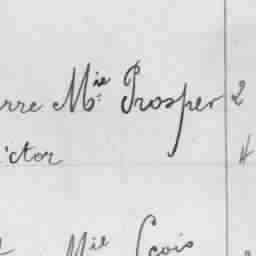 rre Mie Prosper 2
ictor
Mie Fcois